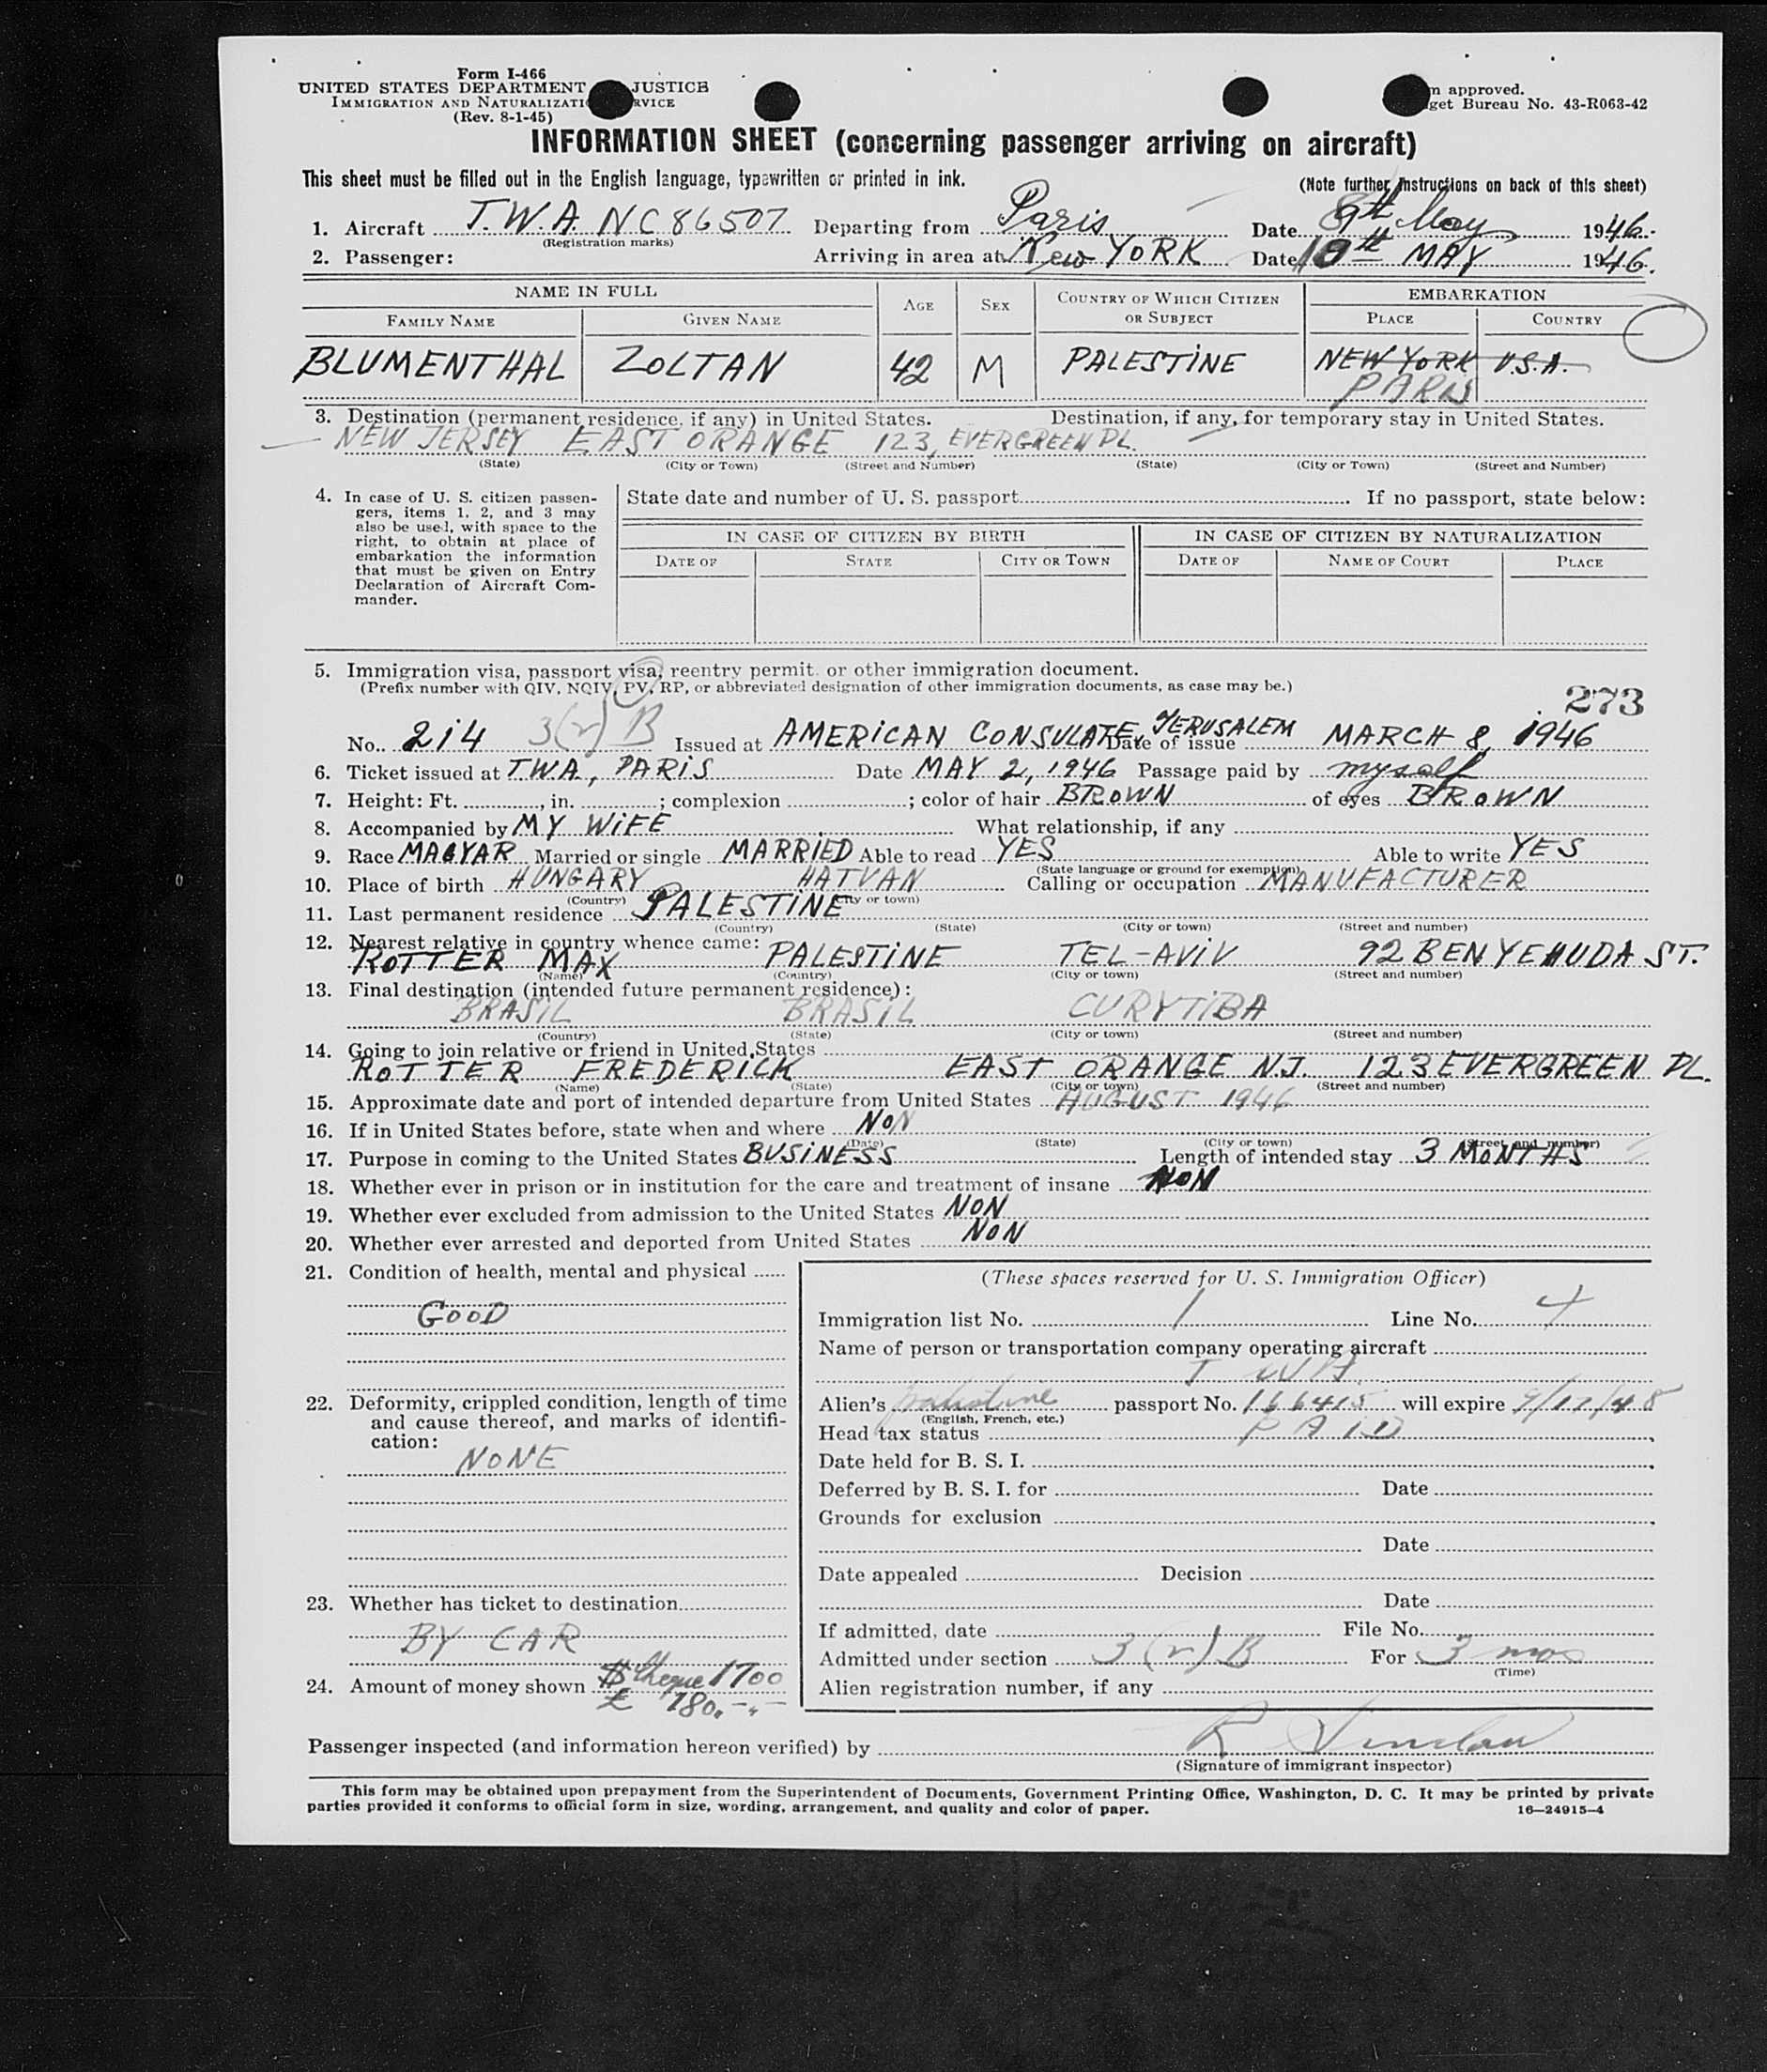 Form I-466
UNITED STATES DEPARTMENT JUSTICE
IMMIGRATION AND NATURALIZATI RVICE
(Rev. 8-1-45)
m approved.
get Bureau No. 43-R063-42
INFORMATION SHEET (concerning passenger arriving on aircraft)
This sheet must be filled out in the English language, typewritten or printed in ink.
(Note further instructions on back of this sheet)
1. Aircraft T.W.A. NC 86507 Departing from Paris Date 9th May 1946.
(Registration marks)
2. Passenger: Arriving in area at New YORK Date 10th MAY 1946.
NAME IN FULL AGE SEX COUNTRY OF WHICH CITIZEN OR SUBJECT EMBARKATION
FAMILY NAME GIVEN NAME PLACE COUNTRY
BLUMENTHAL ZOLTAN 42 M PALESTINE NEW YORK U.S.A.
PARIS
3. Destination (permanent residence, if any) in United States. Destination, if any, for temporary stay in United States.
NEW JERSEY EAST ORANGE 123, EVERGREEN PL.
(State) (City or Town) (Street and Number) (State) (City or Town) (Street and Number)
4. In case of U. S. citizen passen-
gers, items 1, 2, and 3 may
also be used, with space to the
right, to obtain at place of
embarkation the information
that must be given on Entry
Declaration of Aircraft Com-
mander.
State date and number of U. S. passport If no passport, state below:
IN CASE OF CITIZEN BY BIRTH IN CASE OF CITIZEN BY NATURALIZATION
DATE OF STATE CITY OR TOWN DATE OF NAME OF COURT PLACE
5. Immigration visa, passport visa, reentry permit, or other immigration document.
(Prefix number with QIV, NQIV, PV, RP, or abbreviated designation of other immigration documents, as case may be.)
273
No. 214 3(2) B Issued at AMERICAN CONSULATE, JERUSALEM Date of issue MARCH 8, 1946
6. Ticket issued at T.W.A., PARIS Date MAY 2, 1946 Passage paid by myself
7. Height: Ft. , in. ; complexion ; color of hair BROWN of eyes BROWN
8. Accompanied by MY WIFE What relationship, if any
9. Race MAGYAR Married or single MARRIED Able to read YES Able to write YES
(State language or ground for exemption)
10. Place of birth HUNGARY HATVAN Calling or occupation MANUFACTURER
(Country) (City or town)
11. Last permanent residence PALESTINE
(Country) (State) (City or town) (Street and number)
12. Nearest relative in country whence came:
ROTTER MAX PALESTINE TEL-AVIV 92 BEN YEHUDA ST.
(Name) (Country) (City or town) (Street and number)
13. Final destination (intended future permanent residence):
BRASIL BRASIL CURYTIBA
(Country) (State) (City or town) (Street and number)
14. Going to join relative or friend in United States
ROTTER FREDERICK EAST ORANGE N.J. 123 EVERGREEN PL.
(Name) (State) (City or town) (Street and number)
15. Approximate date and port of intended departure from United States AUGUST 1946
16. If in United States before, state when and where NON
(Date) (State) (City or town) (Street and number)
17. Purpose in coming to the United States BUSINESS Length of intended stay 3 MONTHS
18. Whether ever in prison or in institution for the care and treatment of insane NON
19. Whether ever excluded from admission to the United States NON
20. Whether ever arrested and deported from United States NON
21. Condition of health, mental and physical
GOOD
22. Deformity, crippled condition, length of time
and cause thereof, and marks of identifi-
cation:
NONE
23. Whether has ticket to destination
BY CAR
24. Amount of money shown $ cheque 1700
£ 180.--
(These spaces reserved for U. S. Immigration Officer)
Immigration list No. 1 Line No. 4
Name of person or transportation company operating aircraft
T W A
Alien's palestine passport No. 166415 will expire 9/17/48
(English, French, etc.)
Head tax status PAID
Date held for B. S. I.
Deferred by B. S. I. for Date
Grounds for exclusion
Date
Date appealed Decision
Date
If admitted, date File No.
Admitted under section 3(2) B For 3 mos
(Time)
Alien registration number, if any
Passenger inspected (and information hereon verified) by R
(Signature of immigrant inspector)
This form may be obtained upon prepayment from the Superintendent of Documents, Government Printing Office, Washington, D. C. It may be printed by private
parties provided it conforms to official form in size, wording, arrangement, and quality and color of paper.
16—24915-4